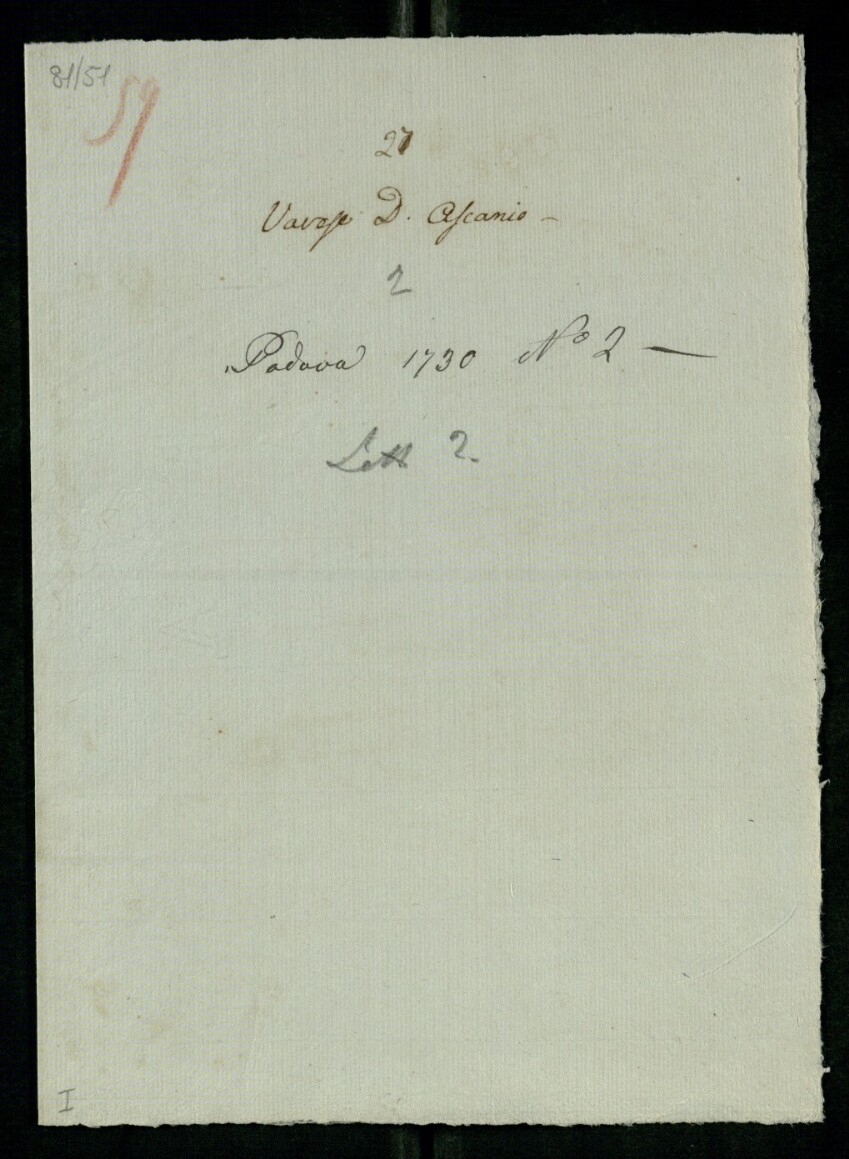 81/51
59
27
Varese D. Ascanio –
2
Padova 1730 Nº 2 —
Lett 2.
I